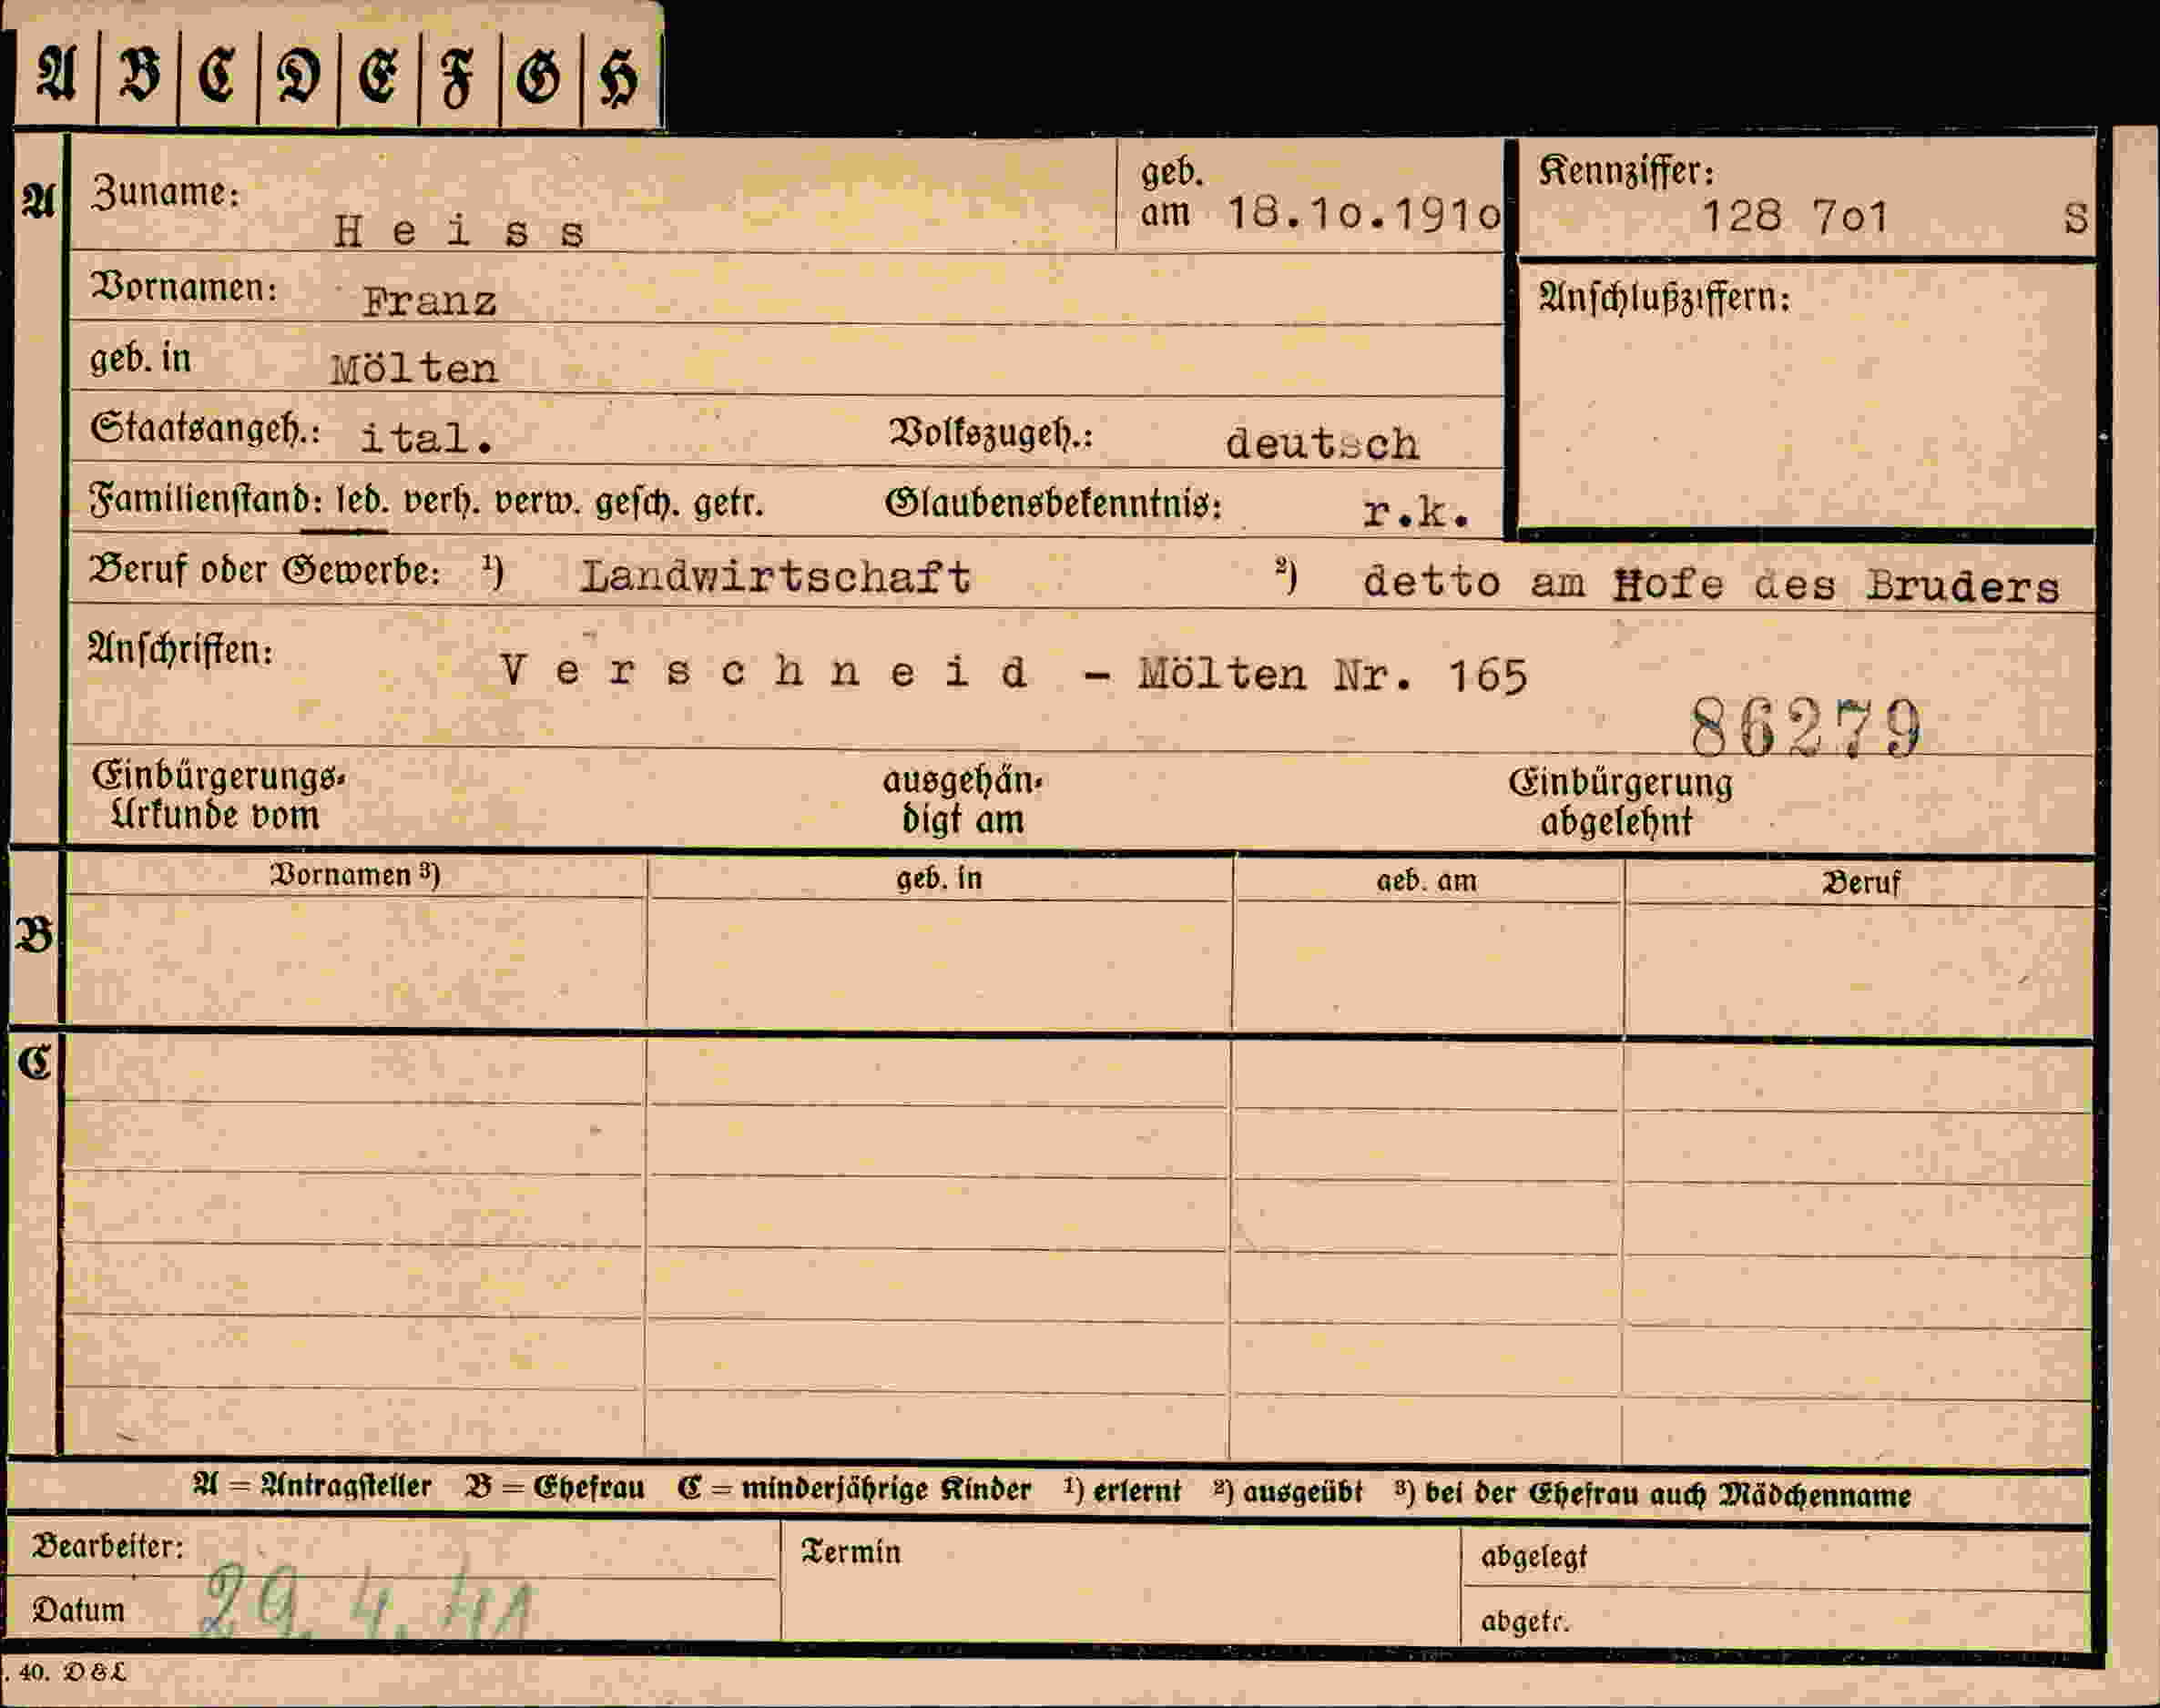 A B C D E F G H
A Zuname: Heiss geb. am 18.1o.191o Kennziffer: 128 7o1 S
Vornamen: Franz Anschlußziffern:
geb. in Mölten
Staatsangeh.: ital. Volkszugeh.: deutsch
Familienstand: led. verh. verw. gesch. getr. Glaubensbekenntnis: r.k.
Beruf oder Gewerbe: ¹) Landwirtschaft ²) detto am Hofe des Bruders
Anschriften: Verschneid - Mölten Nr. 165
86279
Einbürgerungs- ausgehän- Einbürgerung
Urkunde vom digt am abgelehnt
Vornamen ³) geb. in geb. am Beruf
B
C
A = Antragsteller B = Ehefrau C = minderjährige Kinder ¹) erlernt ²) ausgeübt ³) bei der Ehefrau auch Mädchenname
Bearbeiter: Termin abgelegt
Datum 29. 4. 41 abgetr.
. 40. D&L